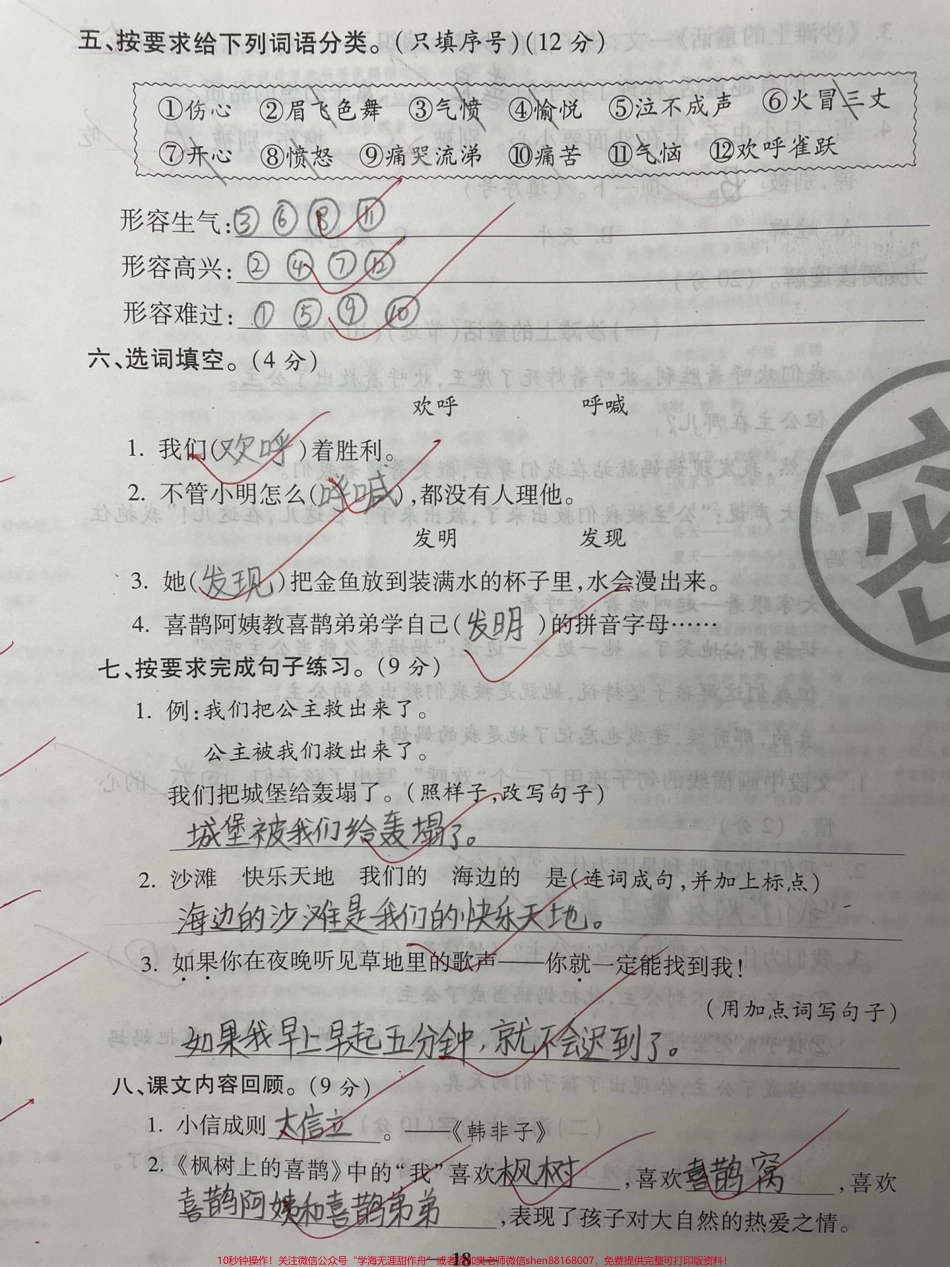 五、按要求给下列词语分类。(只填序号)(12分)
①伤心 ②眉飞色舞 ③气愤 ④愉悦 ⑤泣不成声 ⑥火冒三丈
⑦开心 ⑧愤怒 ⑨痛哭流涕 ⑩痛苦 ⑪气恼 ⑫欢呼雀跃
形容生气:③ ⑥ ⑧ ⑪
形容高兴:② ④ ⑦ ⑫
形容难过:① ⑤ ⑨ ⑩
六、选词填空。(4分)
欢呼 呼喊
1. 我们(欢呼)着胜利。
2. 不管小明怎么(呼喊),都没有人理他。
发明 发现
3. 她(发现)把金鱼放到装满水的杯子里,水会漫出来。
4. 喜鹊阿姨教喜鹊弟弟学自己(发明)的拼音字母……
七、按要求完成句子练习。(9分)
1. 例:我们把公主救出来了。
公主被我们救出来了。
我们把城堡给轰塌了。(照样子,改写句子)
城堡被我们给轰塌了。
2. 沙滩 快乐天地 我们的 海边的 是(连词成句,并加上标点)
海边的沙滩是我们的快乐天地。
3. 如果你在夜晚听见草地里的歌声——你就一定能找到我!
(用加点词写句子)
如果我早上早起五分钟,就不会迟到了。
八、课文内容回顾。(9分)
1. 小信成则大信立。——《韩非子》
2.《枫树上的喜鹊》中的“我”喜欢枫树,喜欢喜鹊窝,喜欢
喜鹊阿姨和喜鹊弟弟,表现了孩子对大自然的热爱之情。
18
密
10秒钟操作!关注微信公众号“学海无涯甜作舟”或者添加樊老师微信shen88168007,免费提供完整可打印版资料!